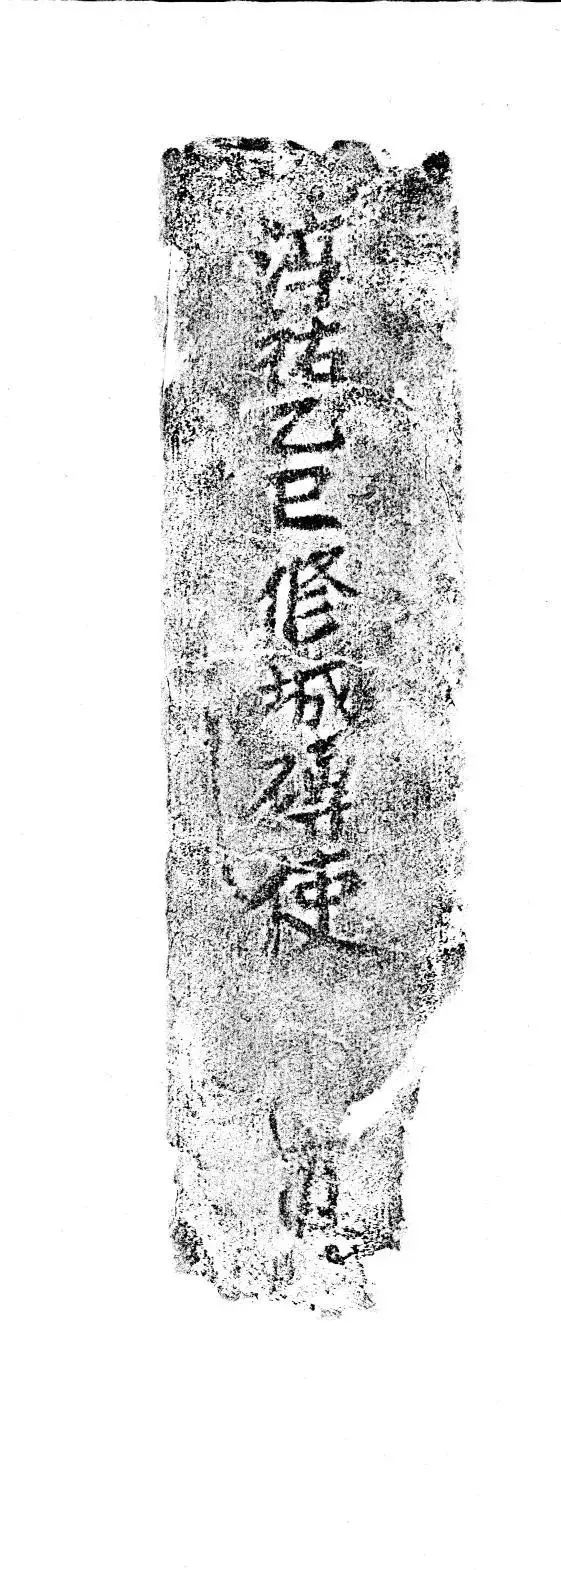 淳祐乙巳修城磚使